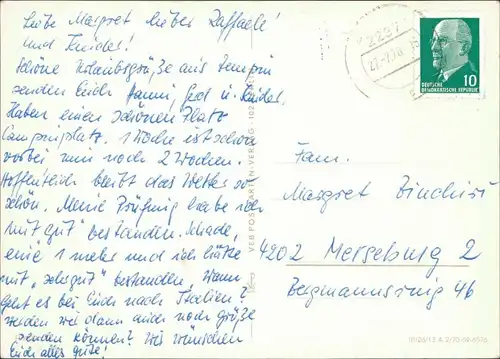 Liebe Margret lieber Raffaele!
und Kinder!
Schöne Urlaubsgrüße aus Templin
senden Euch Hanni, Gerd u. Kinder.
Haben einen schönen Platz
Campingplatz. 1 Woche ist schon
vorbei nun noch 2 Wochen.
Hoffentlich bleibt das Wetter so
schön. Meine Prüfung habe ich
mit "gut" bestanden. Schade,
eine 1 mehr und ich hätte
mit "sehr gut" bestanden. Wann
geht es bei Euch nach Italien?
werden wir dann auch noch Grüße
senden können? Wir wünschen
Euch alles gute!
VEB POSTKARTEN-VERLAG
DEUTSCHE
DEMOKRATISCHE REPUBLIK
10
Fam.
Margret
4202 Merseburg 2
Bergmannsring 46